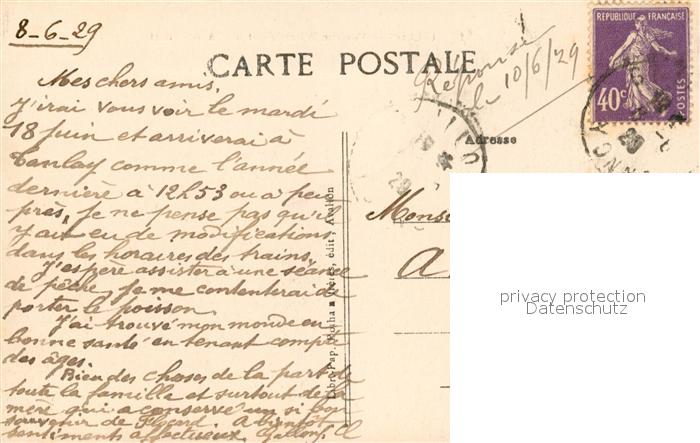 8-6-29
CARTE POSTALE
Réponse
le 10/6/29
REPUBLIQUE FRANÇAISE
40c
POSTES
Adresse
Mes chers amis,
J'irai vous voir le mardi
18 juin et arriverai à
Tanlay comme l'année
dernière à 12h53 ou à peu
près, je ne pense pas qu'il
y ait eu de modifications
dans les horaires des trains.
J'espère assister à une séance
de pêche, je me contenterai de
porter le poisson.
J'ai trouvé mon monde en
bonne santé en tenant compte
des âges.
Bien des choses de la part de
toute la famille et surtout de la
mère qui a conservé un si bon
souvenir de A bientôt
sentiments affectueux.
Libr. Pap. frères, édit., Avallon
Monsi
A
privacy protection
Datenschutz